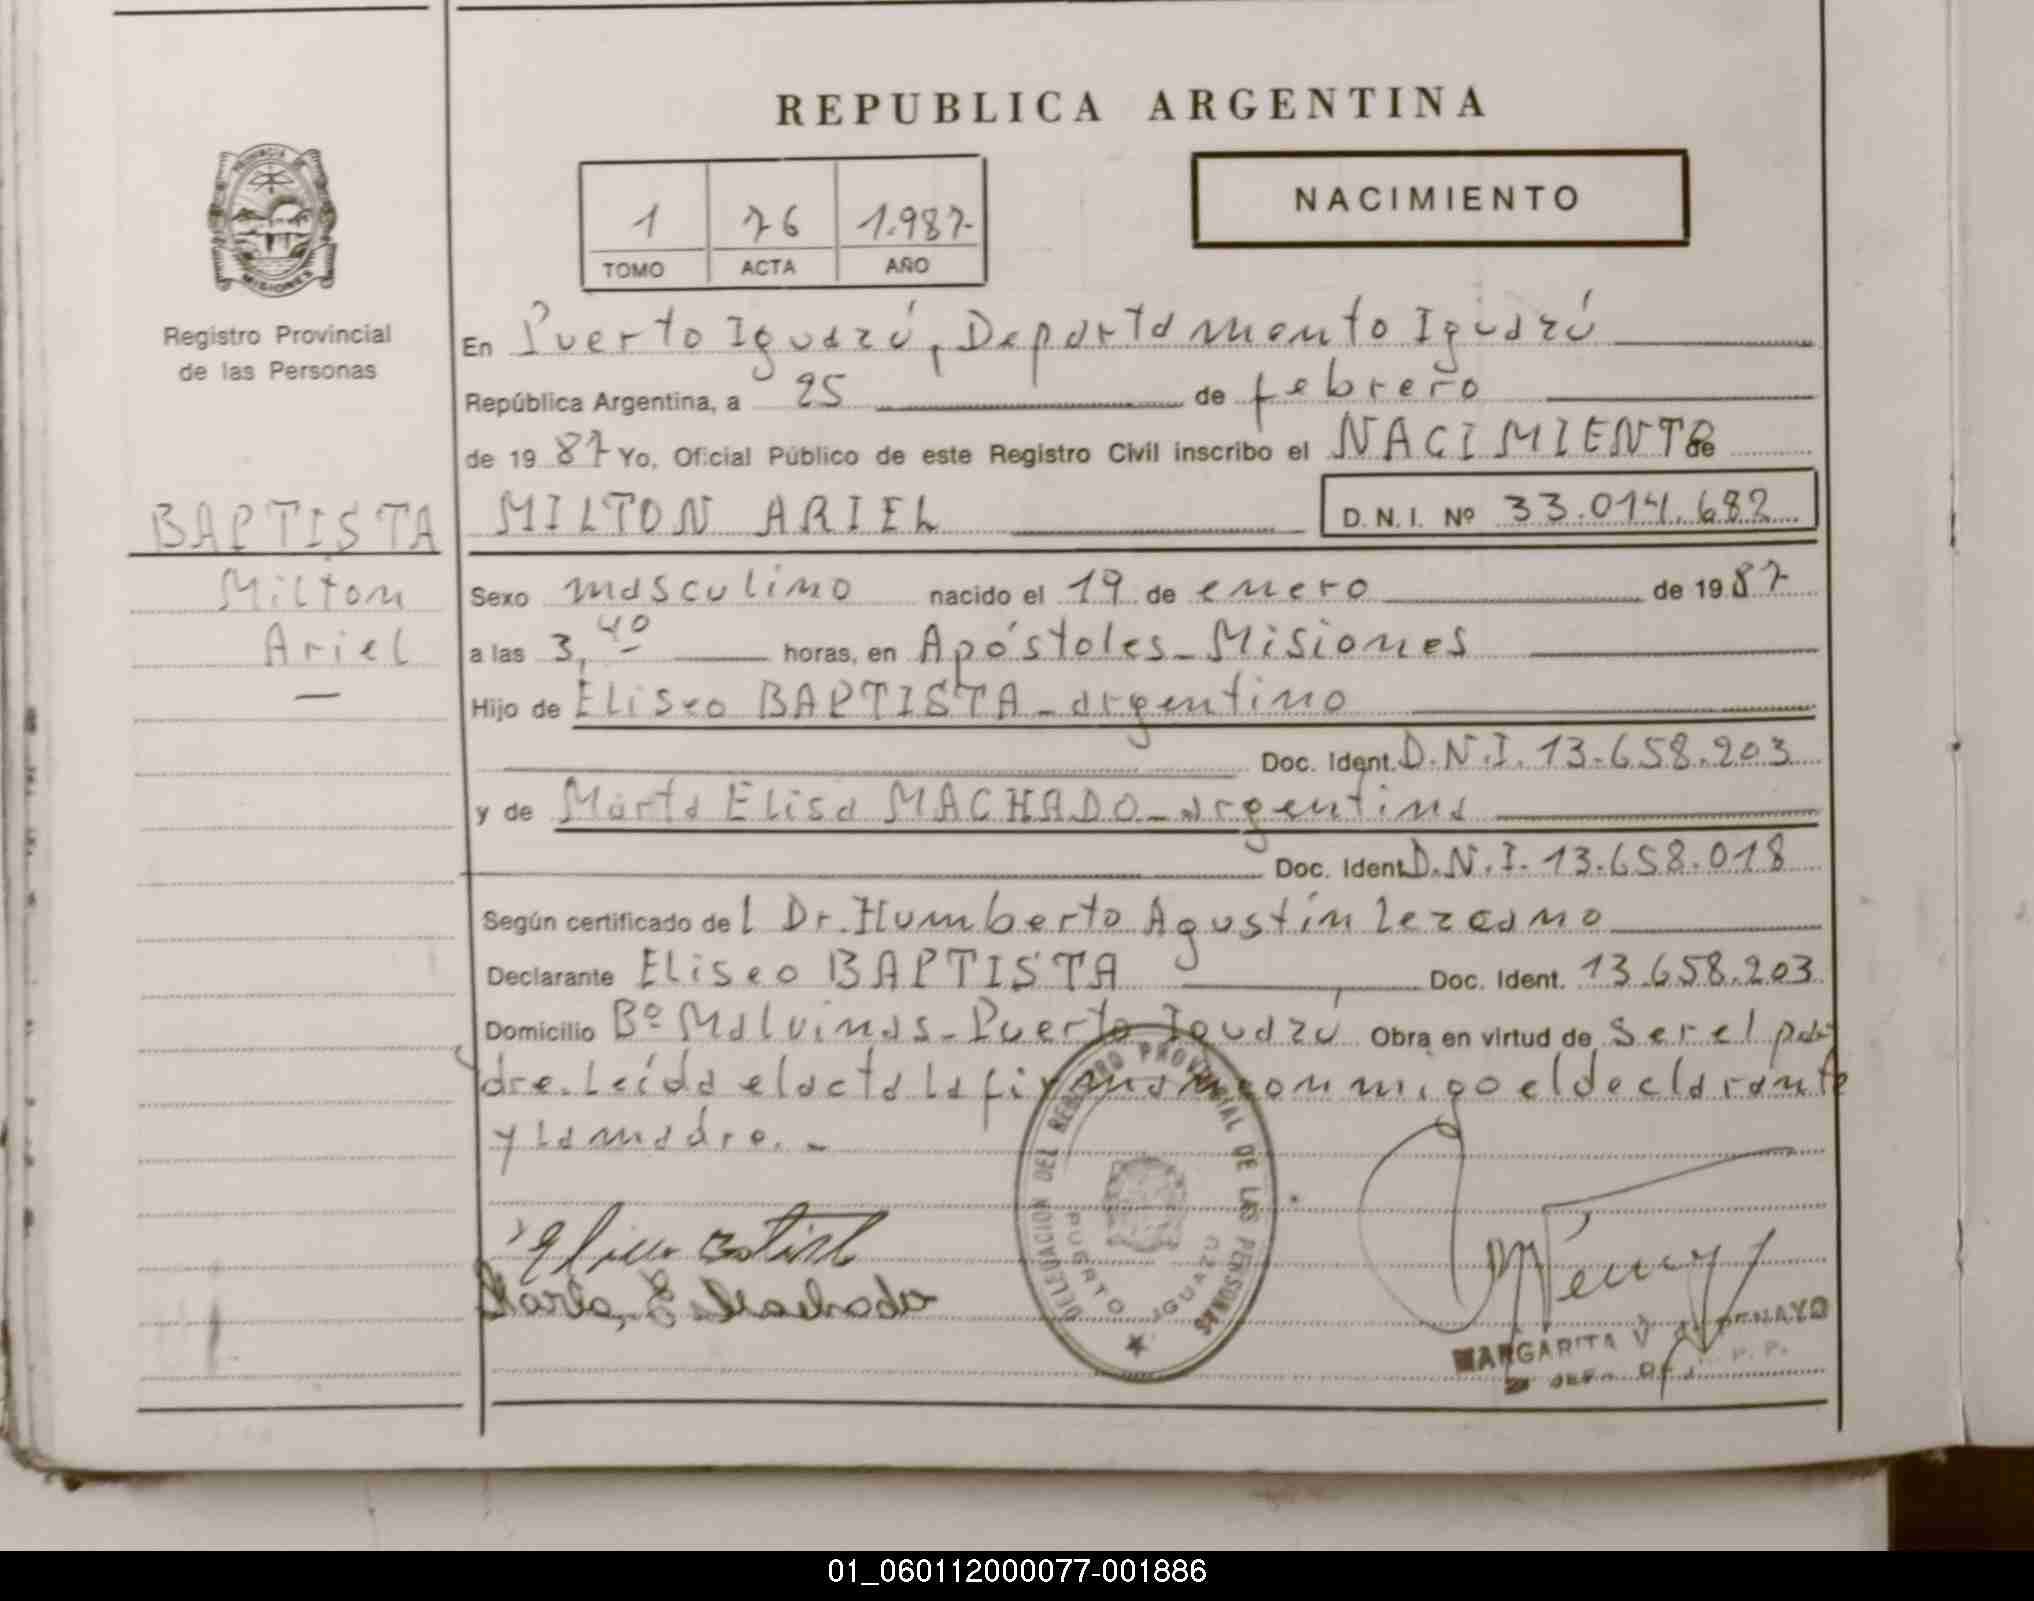 REPUBLICA ARGENTINA
NACIMIENTO
1 76 1.987-
TOMO ACTA AÑO
PROVINCIA DE
MISIONES
Registro Provincial
de las Personas
En Puerto Iguazú, Departamento Iguazú
República Argentina, a 25 de febrero
de 1987 Yo, Oficial Público de este Registro Civil inscribo el NACIMIENTO de
BAPTISTA MILTON ARIEL D. N. I. Nº 33.014.682
Milton
Ariel
Sexo masculino nacido el 19 de enero de 1987
a las 3,40 horas, en Apóstoles - Misiones
Hijo de Eliseo BAPTISTA - argentino
Doc. Ident. D.N.I. 13.658.203
y de Marta Elisa MACHADO - argentina
Doc. Ident. D.N.I. 13.658.018
Según certificado del Dr. Humberto Agustín Lezcano
Declarante Eliseo BAPTISTA Doc. Ident. 13.658.203
Domicilio Bº Malvinas - Puerto Iguazú Obra en virtud de ser el pa-
dre. Leída el acta la firman conmigo el declarante
y la madre. -
DELEGACION DEL REGISTRO PROVINCIAL DE LAS PERSONAS
PUERTO IGUAZU
MARGARITA V
01_060112000077-001886